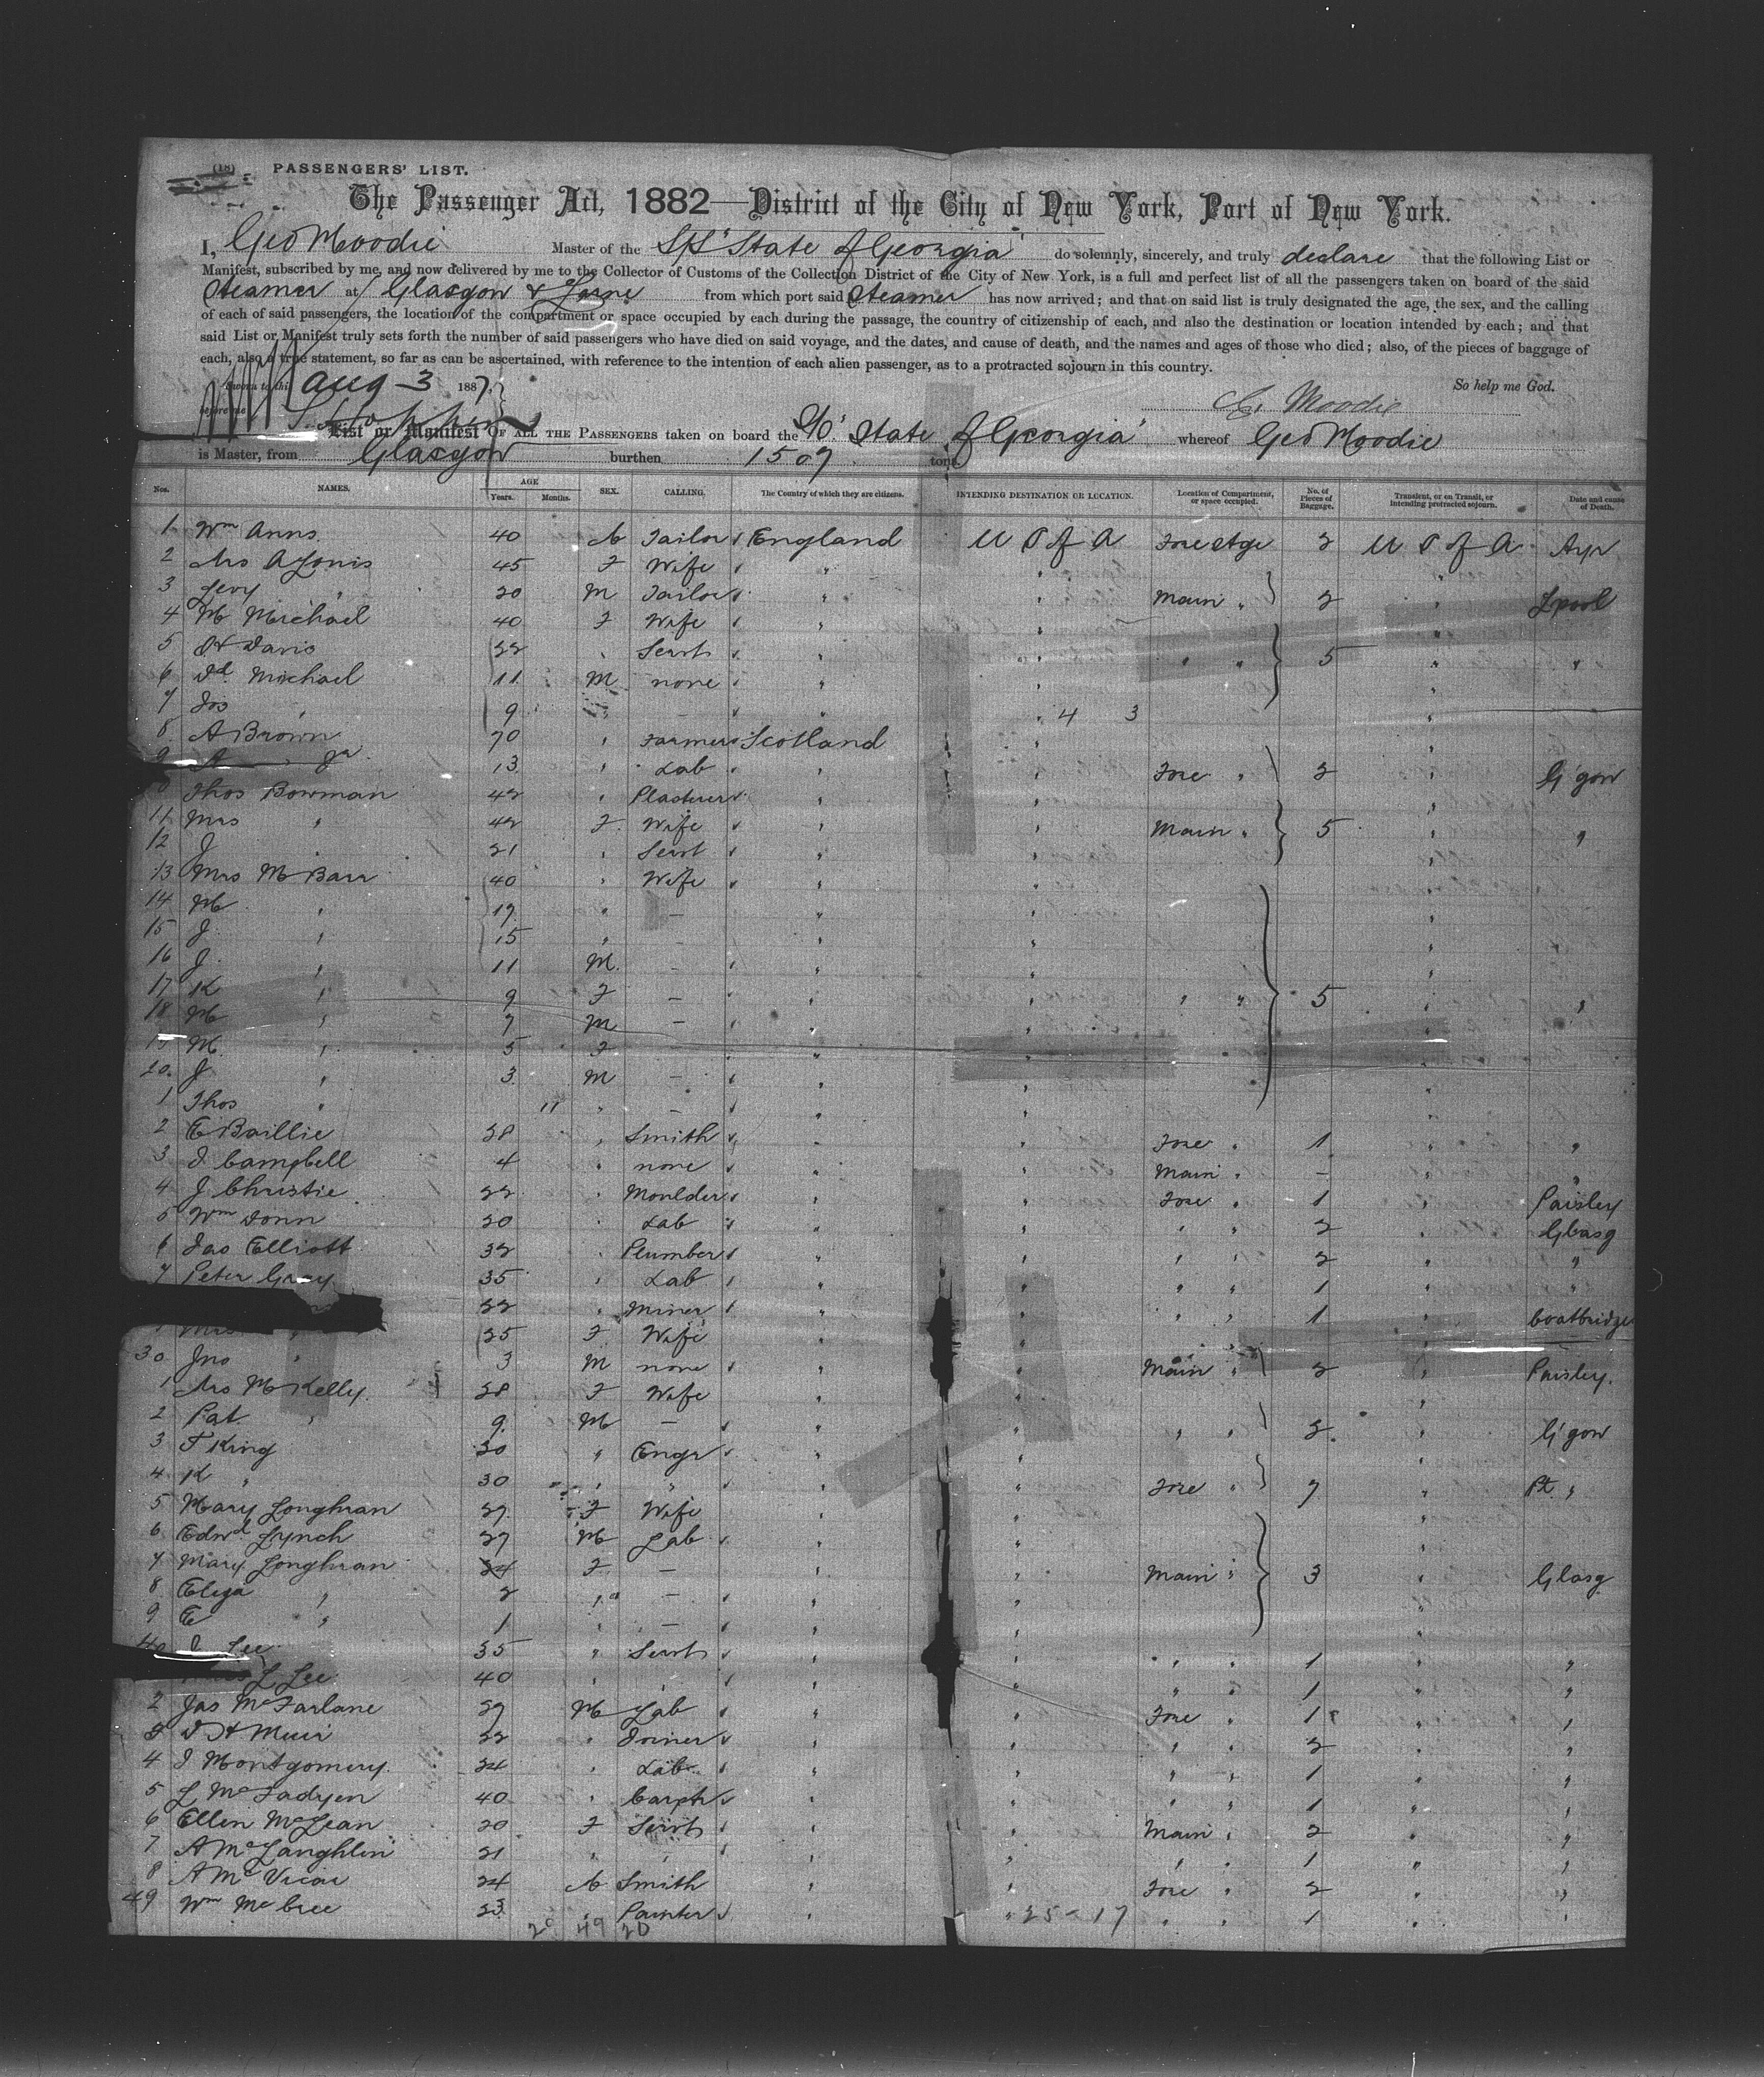 (18) PASSENGERS' LIST.
The Passenger Act, 1882—District of the City of New York, Port of New York.
I, Geo Moodie Master of the S/S "State of Georgia" do solemnly, sincerely, and truly declare that the following List or
Manifest, subscribed by me, and now delivered by me to the Collector of Customs of the Collection District of the City of New York, is a full and perfect list of all the passengers taken on board of the said
Steamer at Glasgow & Larne from which port said Steamer has now arrived; and that on said list is truly designated the age, the sex, and the calling
of each of said passengers, the location of the compartment or space occupied by each during the passage, the country of citizenship of each, and also the destination or location intended by each; and that
said List or Manifest truly sets forth the number of said passengers who have died on said voyage, and the dates, and cause of death, and the names and ages of those who died; also, of the pieces of baggage of
each, also a true statement, so far as can be ascertained, with reference to the intention of each alien passenger, as to a protracted sojourn in this country.
Sworn to this Aug 3 1887. So help me God.
before me Moodie
List or Manifest OF ALL THE PASSENGERS taken on board the State of Georgia whereof Geo Moodie
is Master, from Glasgow burthen 1507 tons
Nos. NAMES. AGE Years. Months. SEX. CALLING. The Country of which they are citizens. INTENDING DESTINATION OR LOCATION. Location of Compartment, or space occupied. No. of Pieces of Baggage. Transient, or on Transit, or intending protracted sojourn. Date and cause of Death.
1 Wm Anns 40 M Tailor England U S of A Fore Stge 2 U S of A Ayr
2 Mrs A Lonis 45 F Wife " "
3 Levy " 20 M Tailor " " Main " 2 " L'pool
4 M Michael 40 F Wife " "
5 Davis 22 " Servt " " " " 5 " "
6 Dd Michael 11 M none " " "
7 Jos " 9 " - " " 4 3 "
8 A Brown 70 " Farmer Scotland " "
9 A " Jr 13 " Lab " " Fore " 2 " G'gow
Thos Bowman 42 " Plasterer " " "
11 Mrs " 42 F Wife " " Main " 5 " "
12 J 21 " Servt " " "
13 Mrs M Barr 40 " Wife " " "
14 M " 17 " - " " "
15 J " 15 " - " " "
16 J " 11 M - " " "
17 K " 9 F - " " " " 5 " "
18 M " 7 M - " " "
19 M " 5 F - " " "
20 J " 3 M - " " "
1 Thos " 11 " - " " "
2 E Baillie 28 " Smith " " Fore " 1 " "
3 J Campbell 4 " none " " Main " - " "
4 J Christie 22 " Moulder " " Fore " 1 " Paisley
5 Wm Donn 20 " Lab " " " " 2 " Glasg
6 Jas Elliott 32 " Plumber " " " " 2 " "
7 Peter Gray 35 " Lab " " " " 1 " "
22 " Miner " " " " 1 " Coatbridge
Mrs " 25 F Wife " "
30 Jno " 3 M none " " Main " 2 " Paisley
1 Mrs M Kelly 28 F Wife " " "
2 Pat " 9 M - " " " " 2 " G'gow
3 F King 20 " Engr " " "
4 K " 30 " " " " Fore " 7 " Pt. "
5 Mary Loughran 27 F Wife " " "
6 Edwd Lynch 27 M Lab " " "
7 Mary Loughran 24 F - " " Main " 3 " Glasg
8 Eliza " 2 " - " " "
9 E " 1 " - " " "
40 Lee 35 " Servt " " " " 1 " "
L Lee 40 " " " " " " 1 " "
2 Jas McFarlane 27 M Lab " " Fore " 1 " "
3 D A Muir 22 " Joiner " " " " 2 " "
4 J Montgomery 24 " Lab " " " " 1 " "
5 L McFadyen 40 " Carptr " " " " 1 " "
6 Ellen McLean 20 F Servt " " Main " 2 " "
7 A McLaughlin 21 " " " " " " 1 " "
8 A McVicar 24 M Smith " " Fore " 2 " "
49 Wm McCree 23 " Painter " " 25-17 " " 1 " "
20 49 20